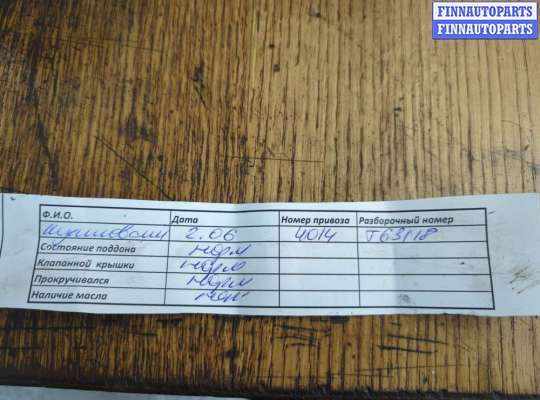 FINNAUTOPARTS
FINNAUTOPARTS
Ф.И.О. Дата Номер привоза Разборочный номер
2.06 4014 Т63118
Состояние поддона норм
Клапанной крышки норм
Прокручивался норм
Наличие масла